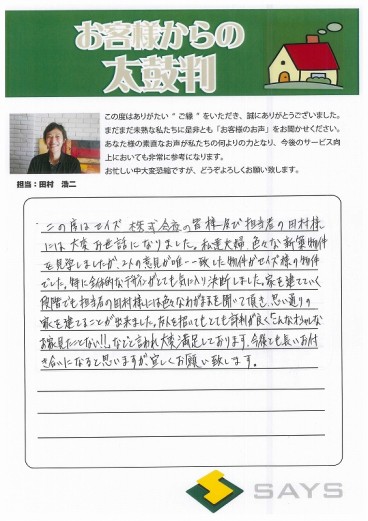 お客様からの
太鼓判
この度はありがたい“ご縁”をいただき、誠にありがとうございました。
まだまだ未熟な私たちに是非とも「お客様のお声」をお聞かせください。
あなた様の素直なお声が私たちの何よりの力となり、今後のサービス向
上においても非常に参考になります。
お忙しい中大変恐縮ですが、どうぞよろしくお願い致します。
担当：田村 浩二
この度はセイズ株式会社の皆様及び担当者の田村様
には大変お世話になりました。私達夫婦、色々な新築物件
を見学しましたが、2人の意見が唯一一致した物件がセイズ様の物件
でした。特に全体的なデザインがとても気に入り決断しました。家を建てていく
段階でも担当者の田村様には色々なわがままを聞いて頂き、思い通りの
家を建てることが出来ました。友人を招いてもとても評判が良く「こんなオシャレな
お家見たことない!!」などと言われ大変満足しております。今後とも長いお付
き合いになると思いますが宜しくお願い致します。
SAYS